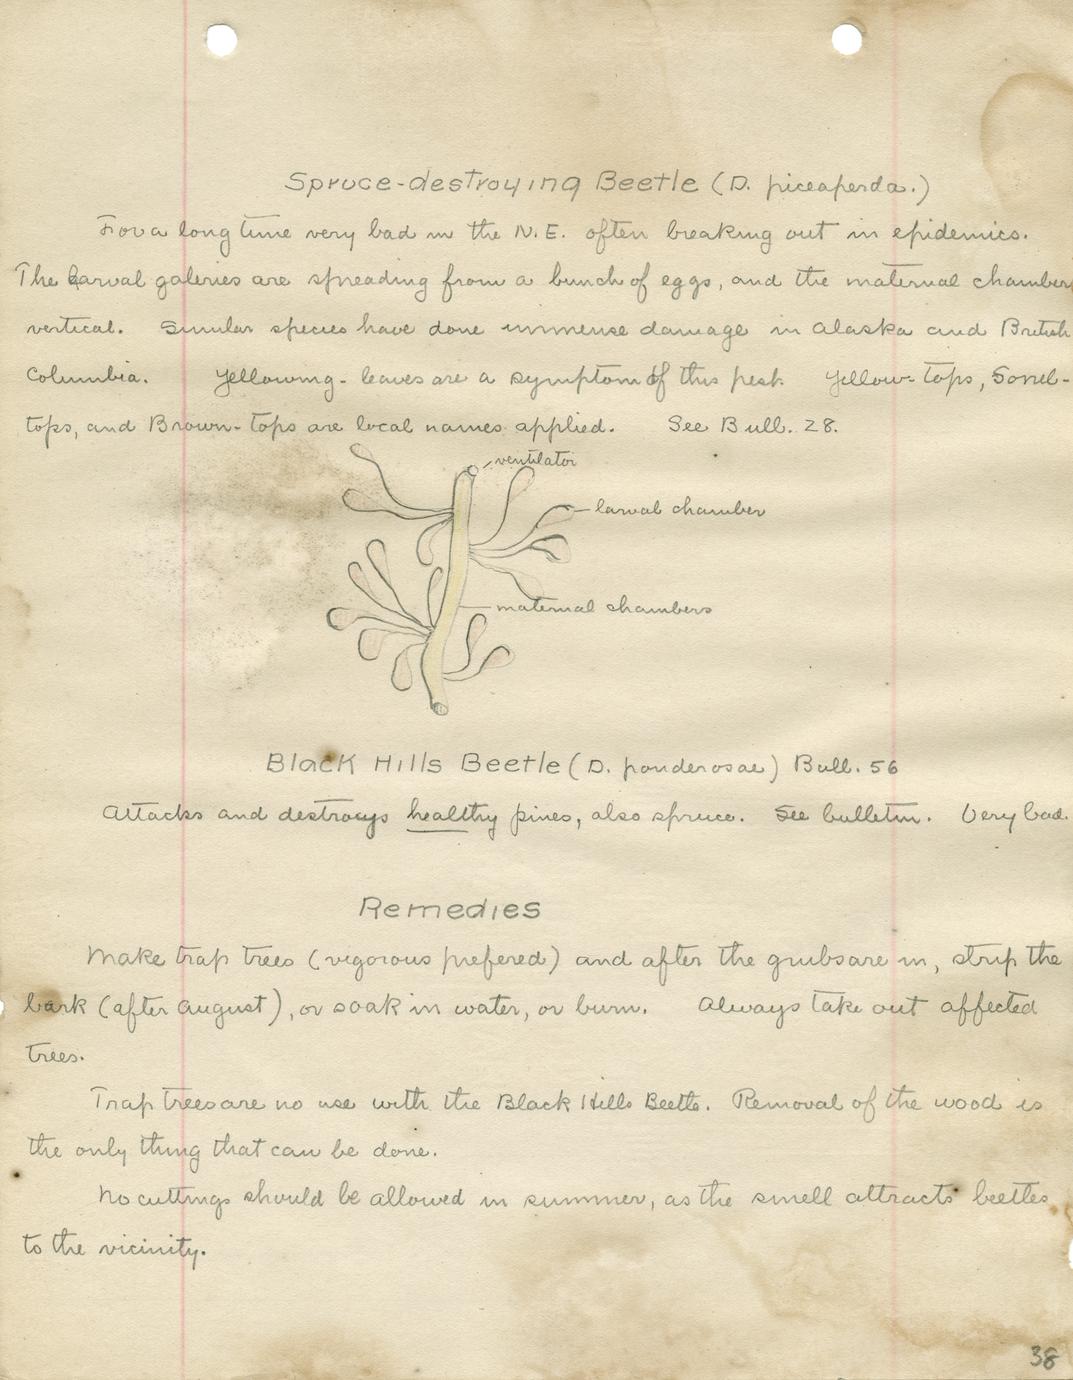 Spruce-destroying Beetle (D. piceaperda.)
For a long time very bad in the N.E. often breaking out in epidemics.
The larval galeries are spreading from a bunch of eggs, and the maternal chamber
vertical. Similar species have done immense damage in Alaska and British
Columbia. Yellowing-leaves are a symptom of this pest. Yellow-tops, Sorrel-
tops, and Brown-tops are local names applied. See Bull. 28.
ventilator
larval chamber
maternal chambers
Black Hills Beetle (D. ponderosae) Bull. 56
Attacks and destroys healthy pines, also spruce. See bulletin. Very bad.
Remedies
Make trap trees (vigorous prefered) and after the grubs are in, strip the
bark (after August), or soak in water, or burn. Always take out affected
trees.
Trap trees are no use with the Black Hills Beetle. Removal of the wood is
the only thing that can be done.
No cuttings should be allowed in summer, as the smell attracts beetles
to the vicinity.
38